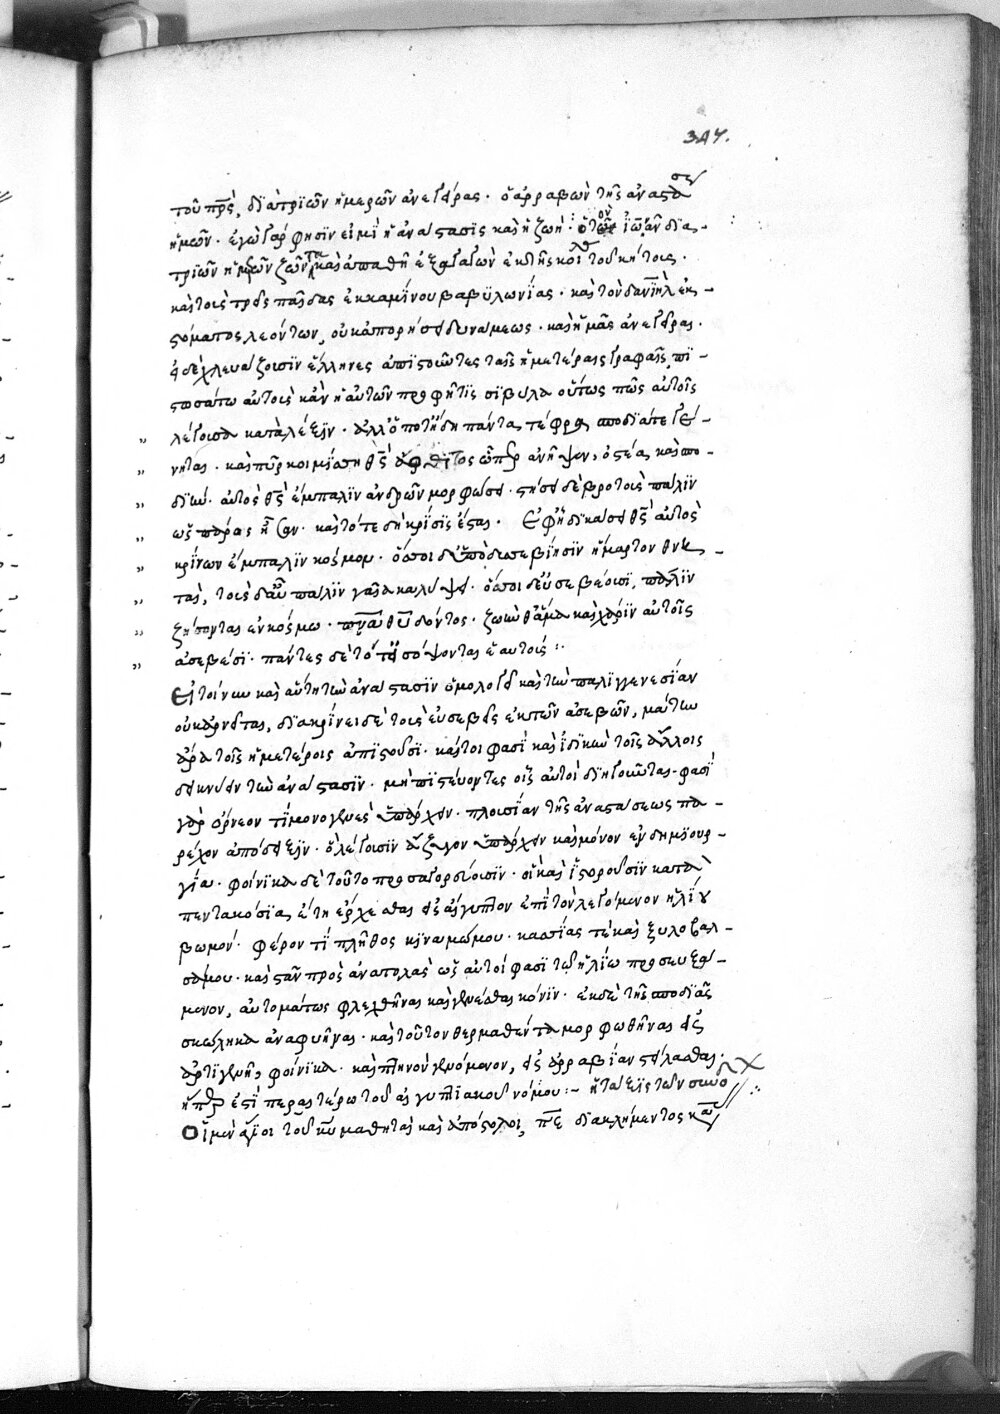 347.
τοῦ πρ̅ς, διὰ τριῶν ἡμερῶν ἀνεγείρας· ὁ ἀρραβὼν τῆς ἀναστάσεως
ἡμῶν· ἐγὼ γάρ φησϊν εἰμὶ ἡ ἀνάστασις καὶ ἡ ζωή· ὁ τὸν ἰωνᾶν διὰ
τριῶν ἡμερῶν ζῶντα καὶ ἀπαθῆ ἐξαγαγὼν ἐκ τῆς κοιλ τοῦ κήτους·
καὶ τοὺς τρεῖς παῖδας ἐκ καμίνου βαβυλωνίας· καὶ τὸν δανιὴλ ἐκ
στόματος λεόντων, οὐκ ἀπορήσει δυνάμεως· καὶ ἡμᾶς ἀνεγεῖραι·
εἰ δὲ χλευάζουσιν ἕλληνες ἀπιστοῦντες ταῖς ἡμετέραις γραφαῖς, πι
στωσάτω αὐτοὺς κἂν ἡ αὐτῶν προφῆτις σίβυλλα οὕτως πῶς αὐτοῖς
„ λέγουσα κατὰ λέξιν· ἀλλ' ὁπότ' ἤδη πάντα τέφρα σποδιὰ τε γέ
„ νηται· καὶ πῦρ κοιμίσῃ θ̅ς ἄφθιτος ὥσπερ ἀνῆψεν, ὀστέα καὶ σπο
„ διὴν· αὐτὸς θ̅ς ἔμπαλιν ἀνδρῶν μορφώσει· στήσει δὲ βροτοὺς πάλιν
„ ὡς πάρος ἦσαν· καὶ τότε δὴ κρίσις ἔσται· ἐφ' ᾗ δικάσει θ̅ς αὐτὸς
„ κρίνων ἔμπαλιν κόσμον· ὅσσοι δ' ὑπὸ δυσσεβίησιν ἥμαρτον θνη
„ τοὶ, τοὺς δ' αὖ πάλιν γαῖα καλύψει· ὅσσοι δ' εὐσεβέουσι, πάλιν
„ ζήσονται ἐν κόσμω· πν̅α θ̅υ δόντος· ζωὴν θ' ἅμα καὶ χάριν αὐτοῖς
„ ἀσεβέσι· πάντες δὲ τότ' εἰσόψονται ἑαυτούς:·
Εἰ τοίνυν καὶ αὕτη τὴν ἀνάστασιν ὁμολογεῖ καὶ τὴν παλιγγενεσίαν
οὐκ ἀρνεῖται, διακρίνει δὲ τοὺς εὐσεβεῖς ἐκ τῶν ἀσεβῶν, μάτην
ἄρα τοῖς ἡμετέροις ἀπιστοῦσι· καίτοι φασὶ καὶ ἰδικὴν τοῖς ἄλλοις
δεικνύειν τὴν ἀνάστασιν· μὴ πιστεύοντες οἷς αὐτοὶ διηγοῦνται· φασὶ
γὰρ ὄρνεον τὶ μονογενὲς ὑπάρχειν· πλουσίαν τῆς ἀναστάσεως πα
ρέχον ἀπόδειξιν· ὃ λέγουσιν ἄζυγον ὑπάρχειν καὶ μόνον ἐν δημιουρ
γία· φοίνικα δὲ τοῦτο προσαγορεύουσιν· οἳ καὶ ἱστοροῦσιν κατὰ
πεντακόσια ἔτη ἔρχεσθαι εἰς αἴγυπτον ἐπὶ τὸν λεγόμενον ἡλίου
βωμόν· φέρον τὶ πλῆθος κιναμώμου· κασίας τὲ καὶ ξυλοβαλ
σάμου· καὶ στὰν πρὸς ἀνατολὰς ὡς αὐτοί φασὶ τῷ ἡλίῳ προσευξά
μενον, αὐτομάτως φλεχθῆναι καὶ γενέσθαι κόνιν· ἐκ δὲ τῆς σποδιᾶς
σκώληκα ἀναφυῆναι· καὶ τοῦτον θερμανθέντα μορφωθῆναι εἰς
ἀρτιγενῆ φοίνικα· καὶ πτηνὸν γενόμενον, εἰς ἀρραβίαν στέλλεσθαι·
ἥπερ ἐστὶ περαιτέρω τοῦ αἰγυπτιακοῦ νόμου:~
Οἱ μὲν ἅγιοι τοῦ κ̅υ μαθηταὶ καὶ ἀπόστολοι, διὰ κλήμεντος